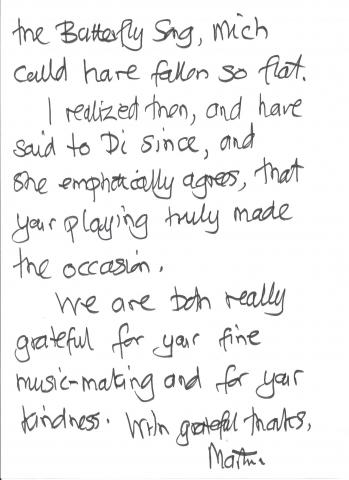 the Butterfly Song, which
could have fallen so flat.
I realized then, and have
said to Di since, and
she emphatically agrees, that
your playing truly made
the occasion.
We are both really
grateful for your fine
music-making and for your
kindness. With grateful thanks,
Martin